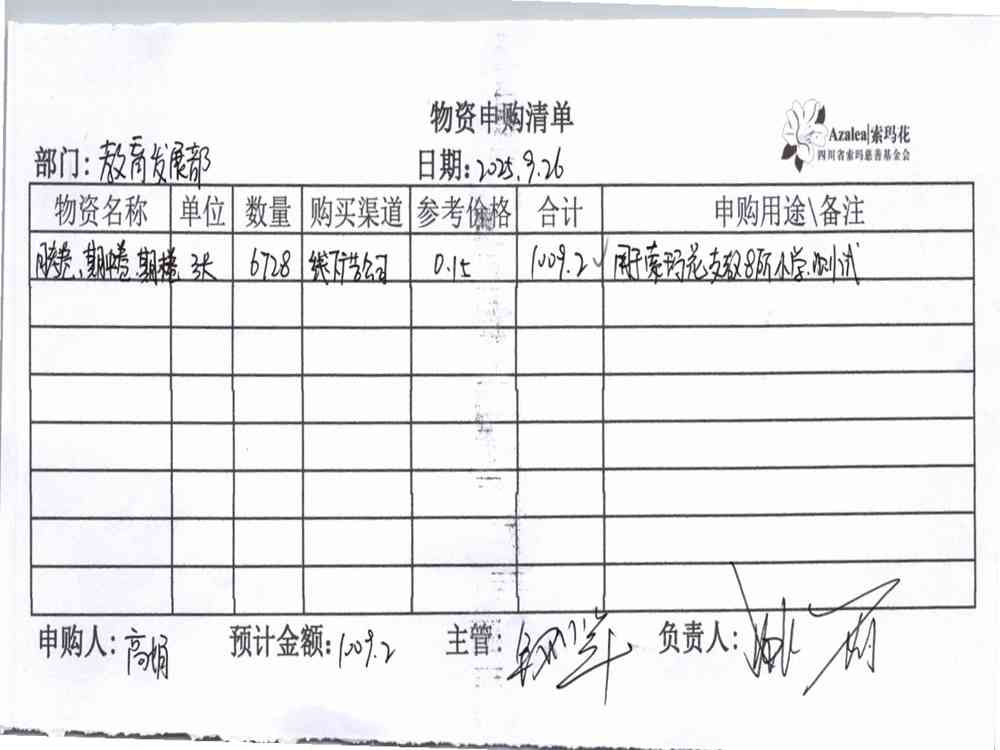 物资申购清单
Azalea|索玛花
四川省索玛慈善基金会
部门：教育发展部 日期：2025.9.26
物资名称 单位 数量 购买渠道 参考价格 合计 申购用途\备注
月考卷、期中卷、期末卷 张 6728 线下广告公司 0.15 1009.2 用于索玛花支教8所小学测试
申购人：高娟 预计金额：1009.2 主管： 负责人：